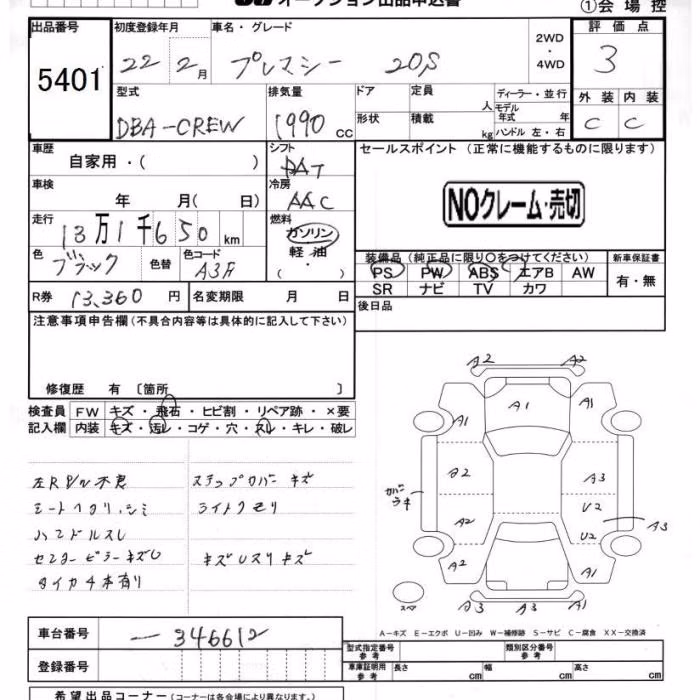 オークション出品申込書
①会場控
出品番号 初度登録年月 車名・グレード 2WD・4WD 評価点
5401 22 2月 プレマシー 20S 3
型式 排気量 ドア 定員 人 ディーラー・並行 外装 内装
DBA-CREW 1990 cc 形状 積載 kg モデル年式 年 ハンドル 左・右 C C
車歴 自家用・( ) シフト DAT セールスポイント (正常に機能するものに限ります)
車検 年 月( 日) 冷房 AAC NOクレーム・売切
走行 13万1千650km 燃料 ガソリン 軽油 ・
色 ブラック 色替 色コード A3F 装備品 (純正品に限り○をつけてください) 新車保証書
PS PW ABS エアB AW 有・無
SR ナビ TV カワ
R券 13,360円 名変期限 月 日 後日品
注意事項申告欄 (不具合内容等は具体的に記入して下さい)
修復歴 有 〔箇所 〕
検査員 FW キズ・飛石・ヒビ割・リペア跡・×要
記入欄 内装 キズ・汚レ・コゲ・穴・スレ・キレ・破レ
左R 不良 ステップカバー キズ
シートヘタリ、シミ ライトクモリ
ハンドルスレ
センターピラーキズ
タイヤ4本有り
A2 A2
A1 A1 A1
A2 A3
カバーウキ U2
A2 U2 A3
A2 A1
スペア A3 A3 A2
A-キズ E-エクボ U-凹み W-補修跡 S-サビ C-腐食 XX-交換済
車台番号 -346612
型式指定番号 参考 類別区分番号 参考
登録番号 車庫証明用 参考 長さ cm 幅 cm 高さ cm
希望出品コーナー (コーナーは各会場により異なります。)